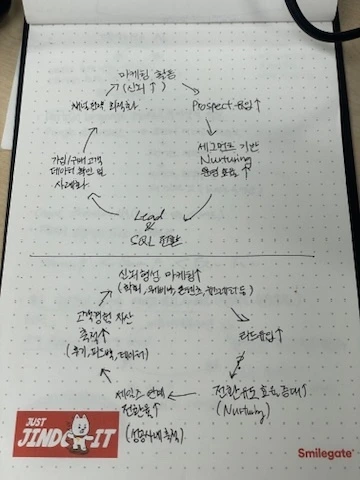 마케팅 활동
(신뢰↑)
채널전략 최적화
Prospect 유입↑
세그먼트 기반
Nurturing
운영 효율↑
가입/구매 고객
데이터 확인 및
사례화
Lead
&
SQL 전환
신뢰형성 마케팅↑
(학회, 웨비나, 콘텐츠, 뉴스레터 등)
고객경험 자산
축적↑
(후기, 피드백, 데이터)
리드유입↑
세일즈 연계
전환율↑
(성공사례 축적)
전환유도 효율 증대↑
(Nurturing)
JUST
JINDO-IT
Smilegate